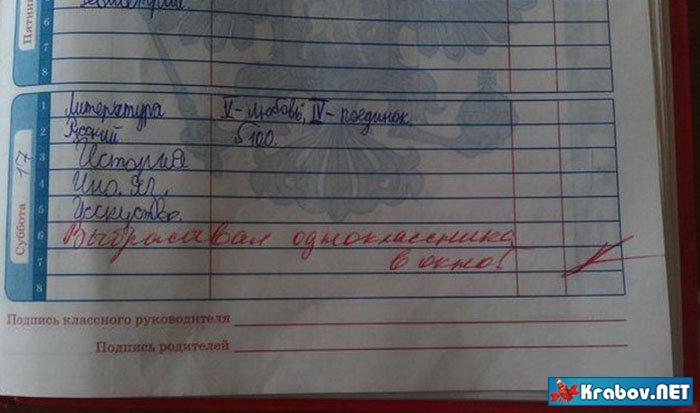 Пятниц
Геометрия.
6
7
8
Суббота 17
1 Литература V - любовь, IV - поединок.
2 Русский § 100.
3 История
4 Ино. яз.
5 Искусство.
6 Выбрасывал одноклассника
7 в окно!
8
Подпись классного руководителя
Подпись родителей
Krabov.NET